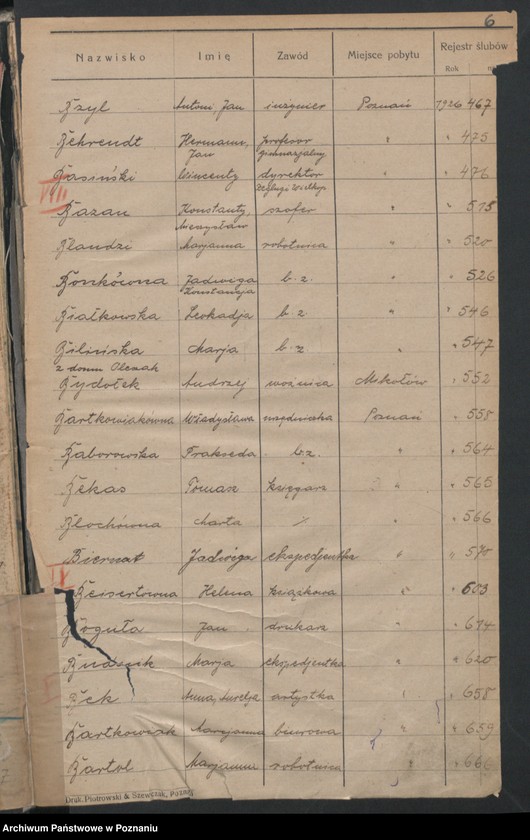 6
Nazwisko Imię Zawód Miejsce pobytu Rejestr ślubów
Rok
Bzyl Antoni, Jan inżynier Poznań 1926 467
Behrendt Hermann, Jan profesor gimnazjalny " " 475
Basiński Wincenty dyrektor Wielkop. " " 476
VIII
Bazan Konstanty Mieczysław szofer " " 515
Blandzi Marjanna robotnica " " 520
Boszkówna Jadwiga Konstancja b. z. " " 526
Białkowska Leokadja b. z. " " 546
Bilińska z domu Olszak Marja b. z. " " 547
Bydołek Andrzej woźnica Mikołów " 552
Bartkowiakówna Władysława urzędniczka Poznań " 558
Baborowska Prakseda b. z. " " 564
Bekas Tomasz księgarz " " 565
Blochówna Marta " " 566
Biernat Jadwiga ekspedjentka " " 570
IX
Beisertówna Helena książkowa " " 603
Boguła Jan drukarz " " 614
Marja ekspedjentka " " 620
Bek Anna, Aurelja artystka " " 658
Bartkowiak Marjanna biurowa " " 659
Bartol Marjanna robotnica " " 666
Druk. Piotrowski & Szewczak, Poznań
Archiwum Państwowe w Poznaniu